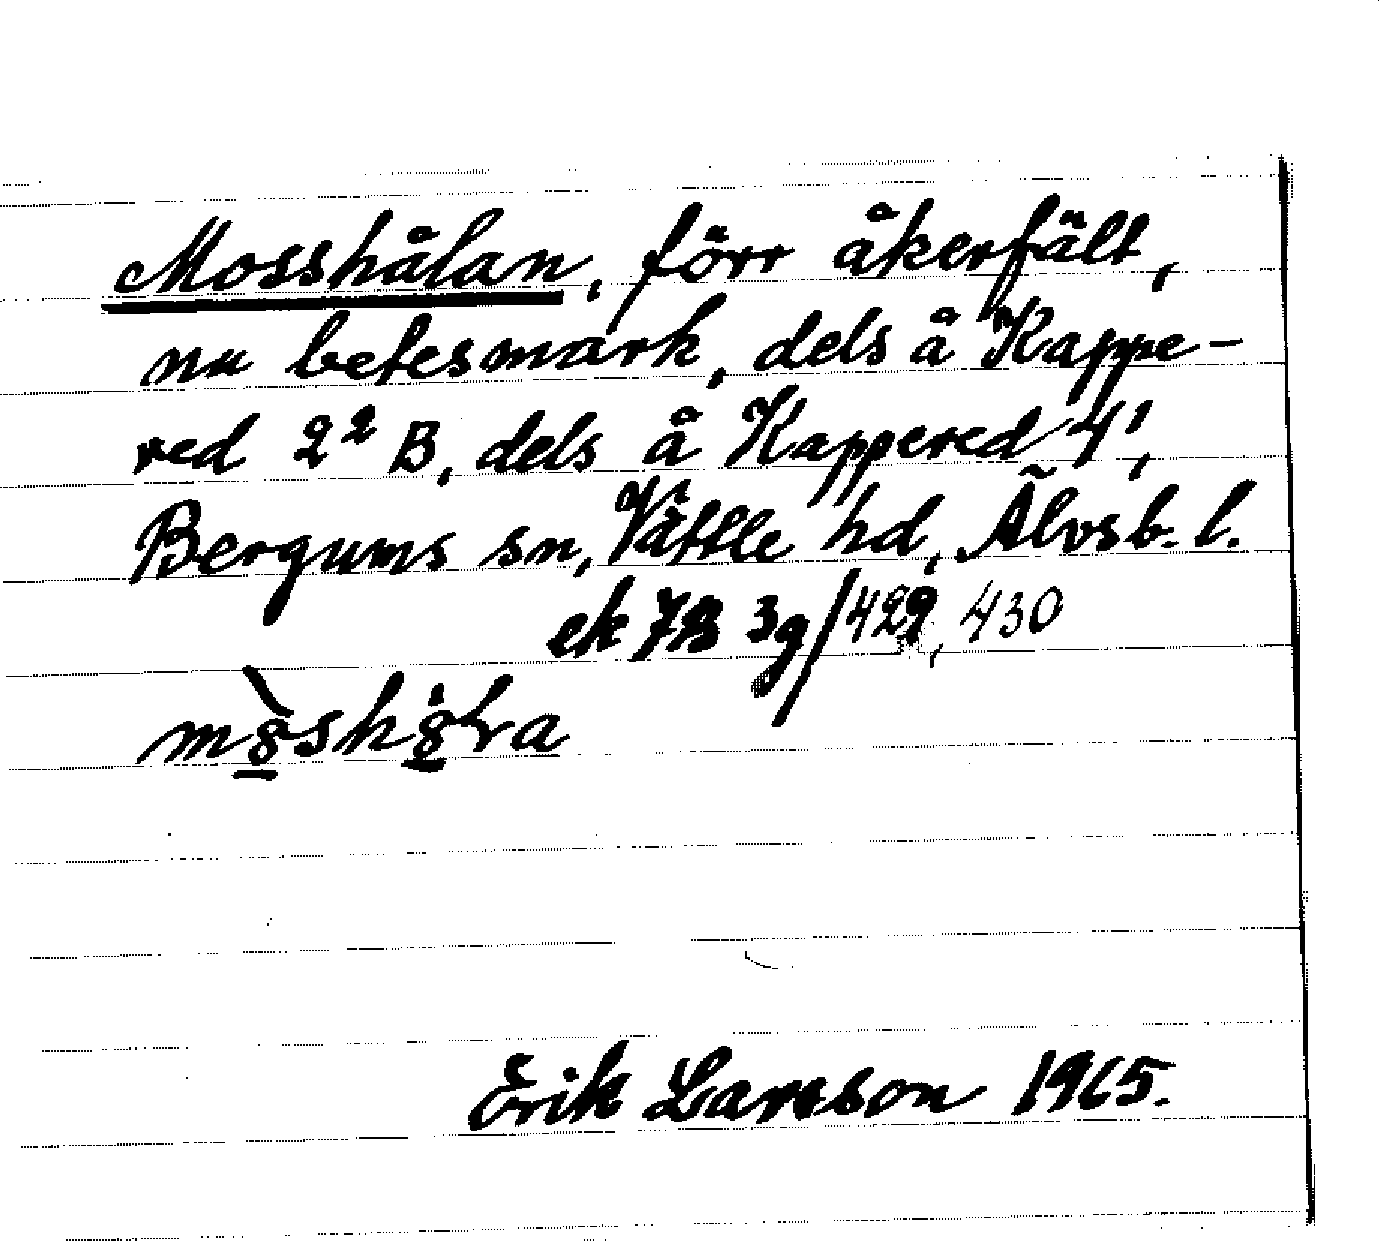 Mosshålan, förr åkerfält,
nu betesmark, dels å Kappe-
red 2² B, dels å Kappered 4¹,
Bergums sn, Vättle hd, Älvsb. l.
ek 7B 3g/429, 430
Erik Larsson 1965.